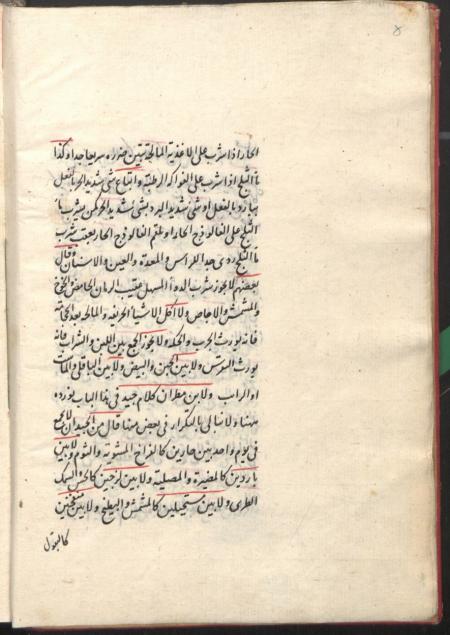 ٨
الحار اذا شرب على الاغذية المالحة تبين ضرره سريعا جدا وكذا
ماء الثلج اذا شرب على الفواكه الرطبة واتباع شئ شديد الحر بالفعل
ببارد بالفعل او شئ شديد البرد بشئ شديد الحر كمن يشرب ماء
الثلج على الفالوذج الحار او يلقم الفالوذج الحار بعقب شرب
ماء الثلج ردى جدا للراس والمعدة والعين والاسنان وقال
بعضهم لا يجوز شرب المسهل عقيب الرمان الحامض والخوخ
والمشمش والاجاص ولا اكل الاشيا الحريفه والمالحه بعد الحجامة
فانه يورث الجرب والحكه ولا يجوز الجمع بين اللبن والشراب فانه
يورث النقرس ولا بين الجبن والبيض ولا بين الباقلى والماست
او الرايب ولابن مطران كلام جيد فى هذا الباب نورده
ههنا ولا نبالى بالتكرار فى بعض منها قال من الجيد ان لا يجمع
فى يوم واحد بين حارين كالفراخ المشوية والثوم ولا بين
باردين كالمضيرة والمصلية ولا بين لزجين كالخس والسمك
الطرى ولا بين مستحيلين كالمشمش والبطيخ ولا بين منفخين
كالبقول